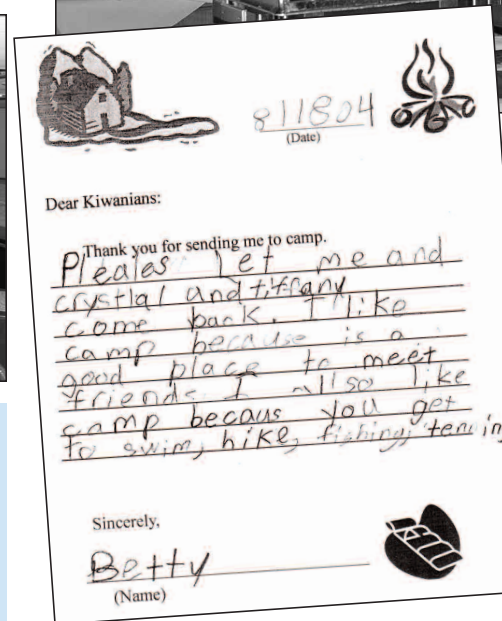 811804
(Date)
Dear Kiwanians:
Thank you for sending me to camp.
Pleales let me and
crystlal and tiffany
come back. I like
camp because is a
good place to meet
friends I allso like
camp becaus you get
to swim, hike, fishing,
Sincerely,
Betty
(Name)